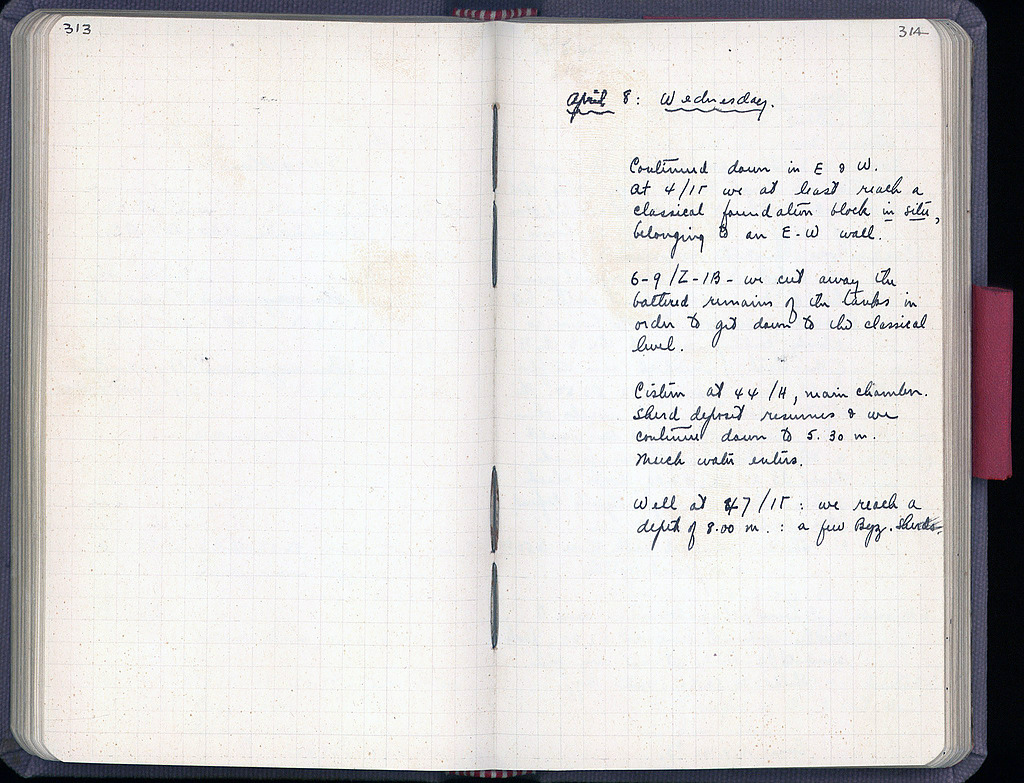 313
314
April 8: Wednesday.
Continued down in E & W.
At 4/ΙΓ we at least reach a
classical foundation block in situ,
belonging to an E-W wall.
6-9/Z-ΙΒ - we cut away the
battered remains of the tanks in
order to get down to the classical
level.
Cistern at 44/H, main chamber.
Sherd deposit resumes & we
continue down to 5.30 m.
Much water enters.
Well at 47/ΙΓ: we reach a
depth of 8.00 m.: a few Byz. sherds.